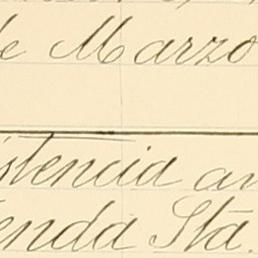 de Marzo
istencia an
enda Sta.